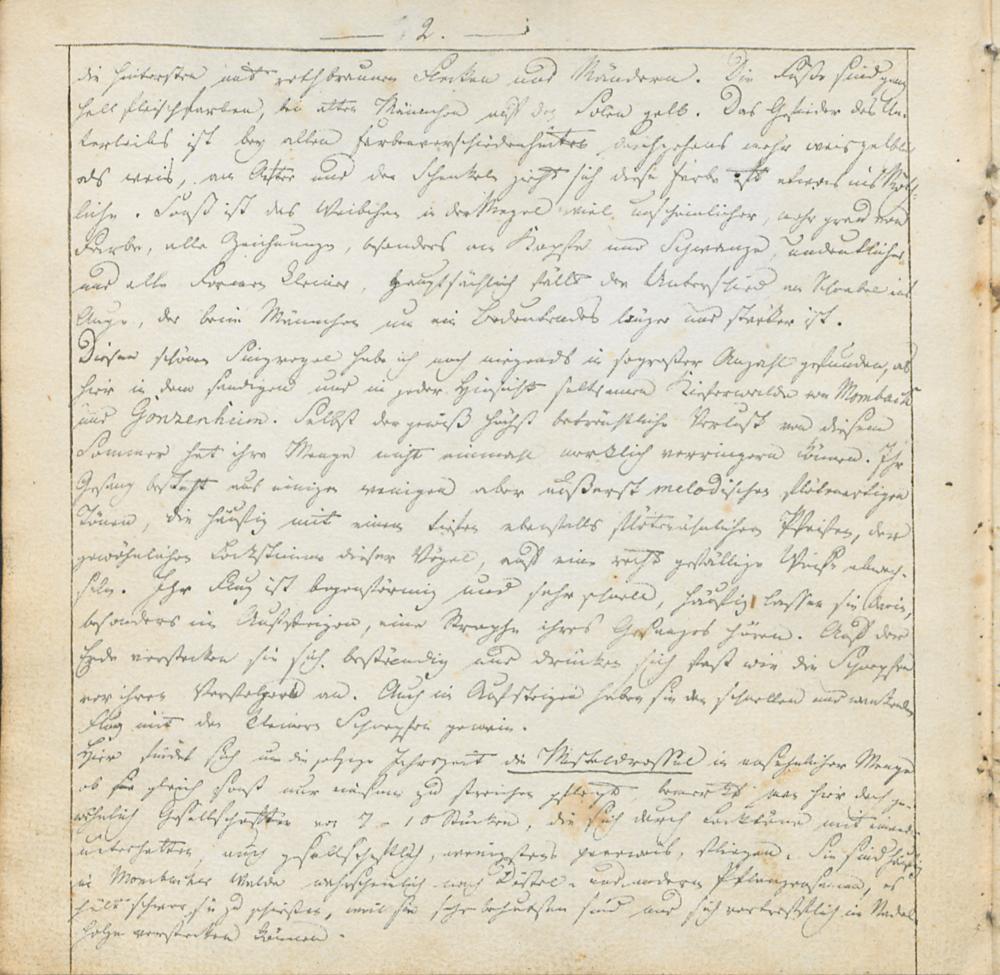 2.
die hintersten mit rothbraunen Flecken und Rändern. Die Füße sind ganz
hell fleischfarben, bei alten Männchen auf den Solen gelb. Das Gefieder des Un-
terleibes ist bey allen Farbenverschiedenheiten durchgehens mehr weisgelblich
als weis, am After und den Schenkeln zieht sich diese Farbe oft etwas ins Röth-
liche. Sonst ist das Weibchen in der Regel viel unscheinlicher, mehr grau von
Farbe, alle Zeichnungen, besonders am Kopfe und Schwanze, undeutlicher
und alle Formen kleiner, hauptsächlich fällt der Unterschied am Schnabel ins
Auge, der beim Männchen um ein Bedeutendes länger und stärker ist.
Diesen schönen Singvogel habe ich noch nirgends in so großer Anzahl gefunden, als
hier in dem sandigen und in jeder Hinsicht seltsamen Kieferwalde von Mombach
und Gonzenheim. Selbst der gewiß höchst beträchtliche Verlust von diesem
Sommer hat ihre Menge nicht einmahl merklich verringern können. Ihr
Gesang besteht aus einigen wenigen aber äußerst melodischen flötenartigen
Tönen, die häufig mit einem tiefen ebenfalls flötenähnlichen Pfeifen, der
gewöhnlichen Lockstimme dieser Vögel, auf eine recht gefällige Weise abwech-
seln. Ihr Flug ist bogenförmig und sehr schnell, häufig lassen sie darin,
besonders im Aufsteigen, eine Strophe ihres Gesanges hören. Auf der
Erde verstecken sie sich beständig und drücken sich fast wie die Schnepfen
vor ihrem Verfolger an. Auch im Aufsteigen haben sie den schnellen und wankenden
Flug mit den kleinen Schnepfen gemein.
Hier findet sich um die jetzige Jahrszeit die Misteldrossel in ansehnlicher Menge
ob sie gleich sonst nur einsam zu streichen pflegt, bemerkt man hier doch ge-
wöhnlich Gesellschaften von 7 - 10 Stücken, die sich durch Locktöne mit einander
unterhalten, auch gesellschaftlich, wenigstens paarweis, fliegen. Sie sind häufig
im Mombacher Walde wahrscheinlich nach und andern Pflanzensamen, es
hält schwer sie zu schießen, weil sie sehr behutsam sind und sich vortrefflich im Nadel
holze verstecken können.